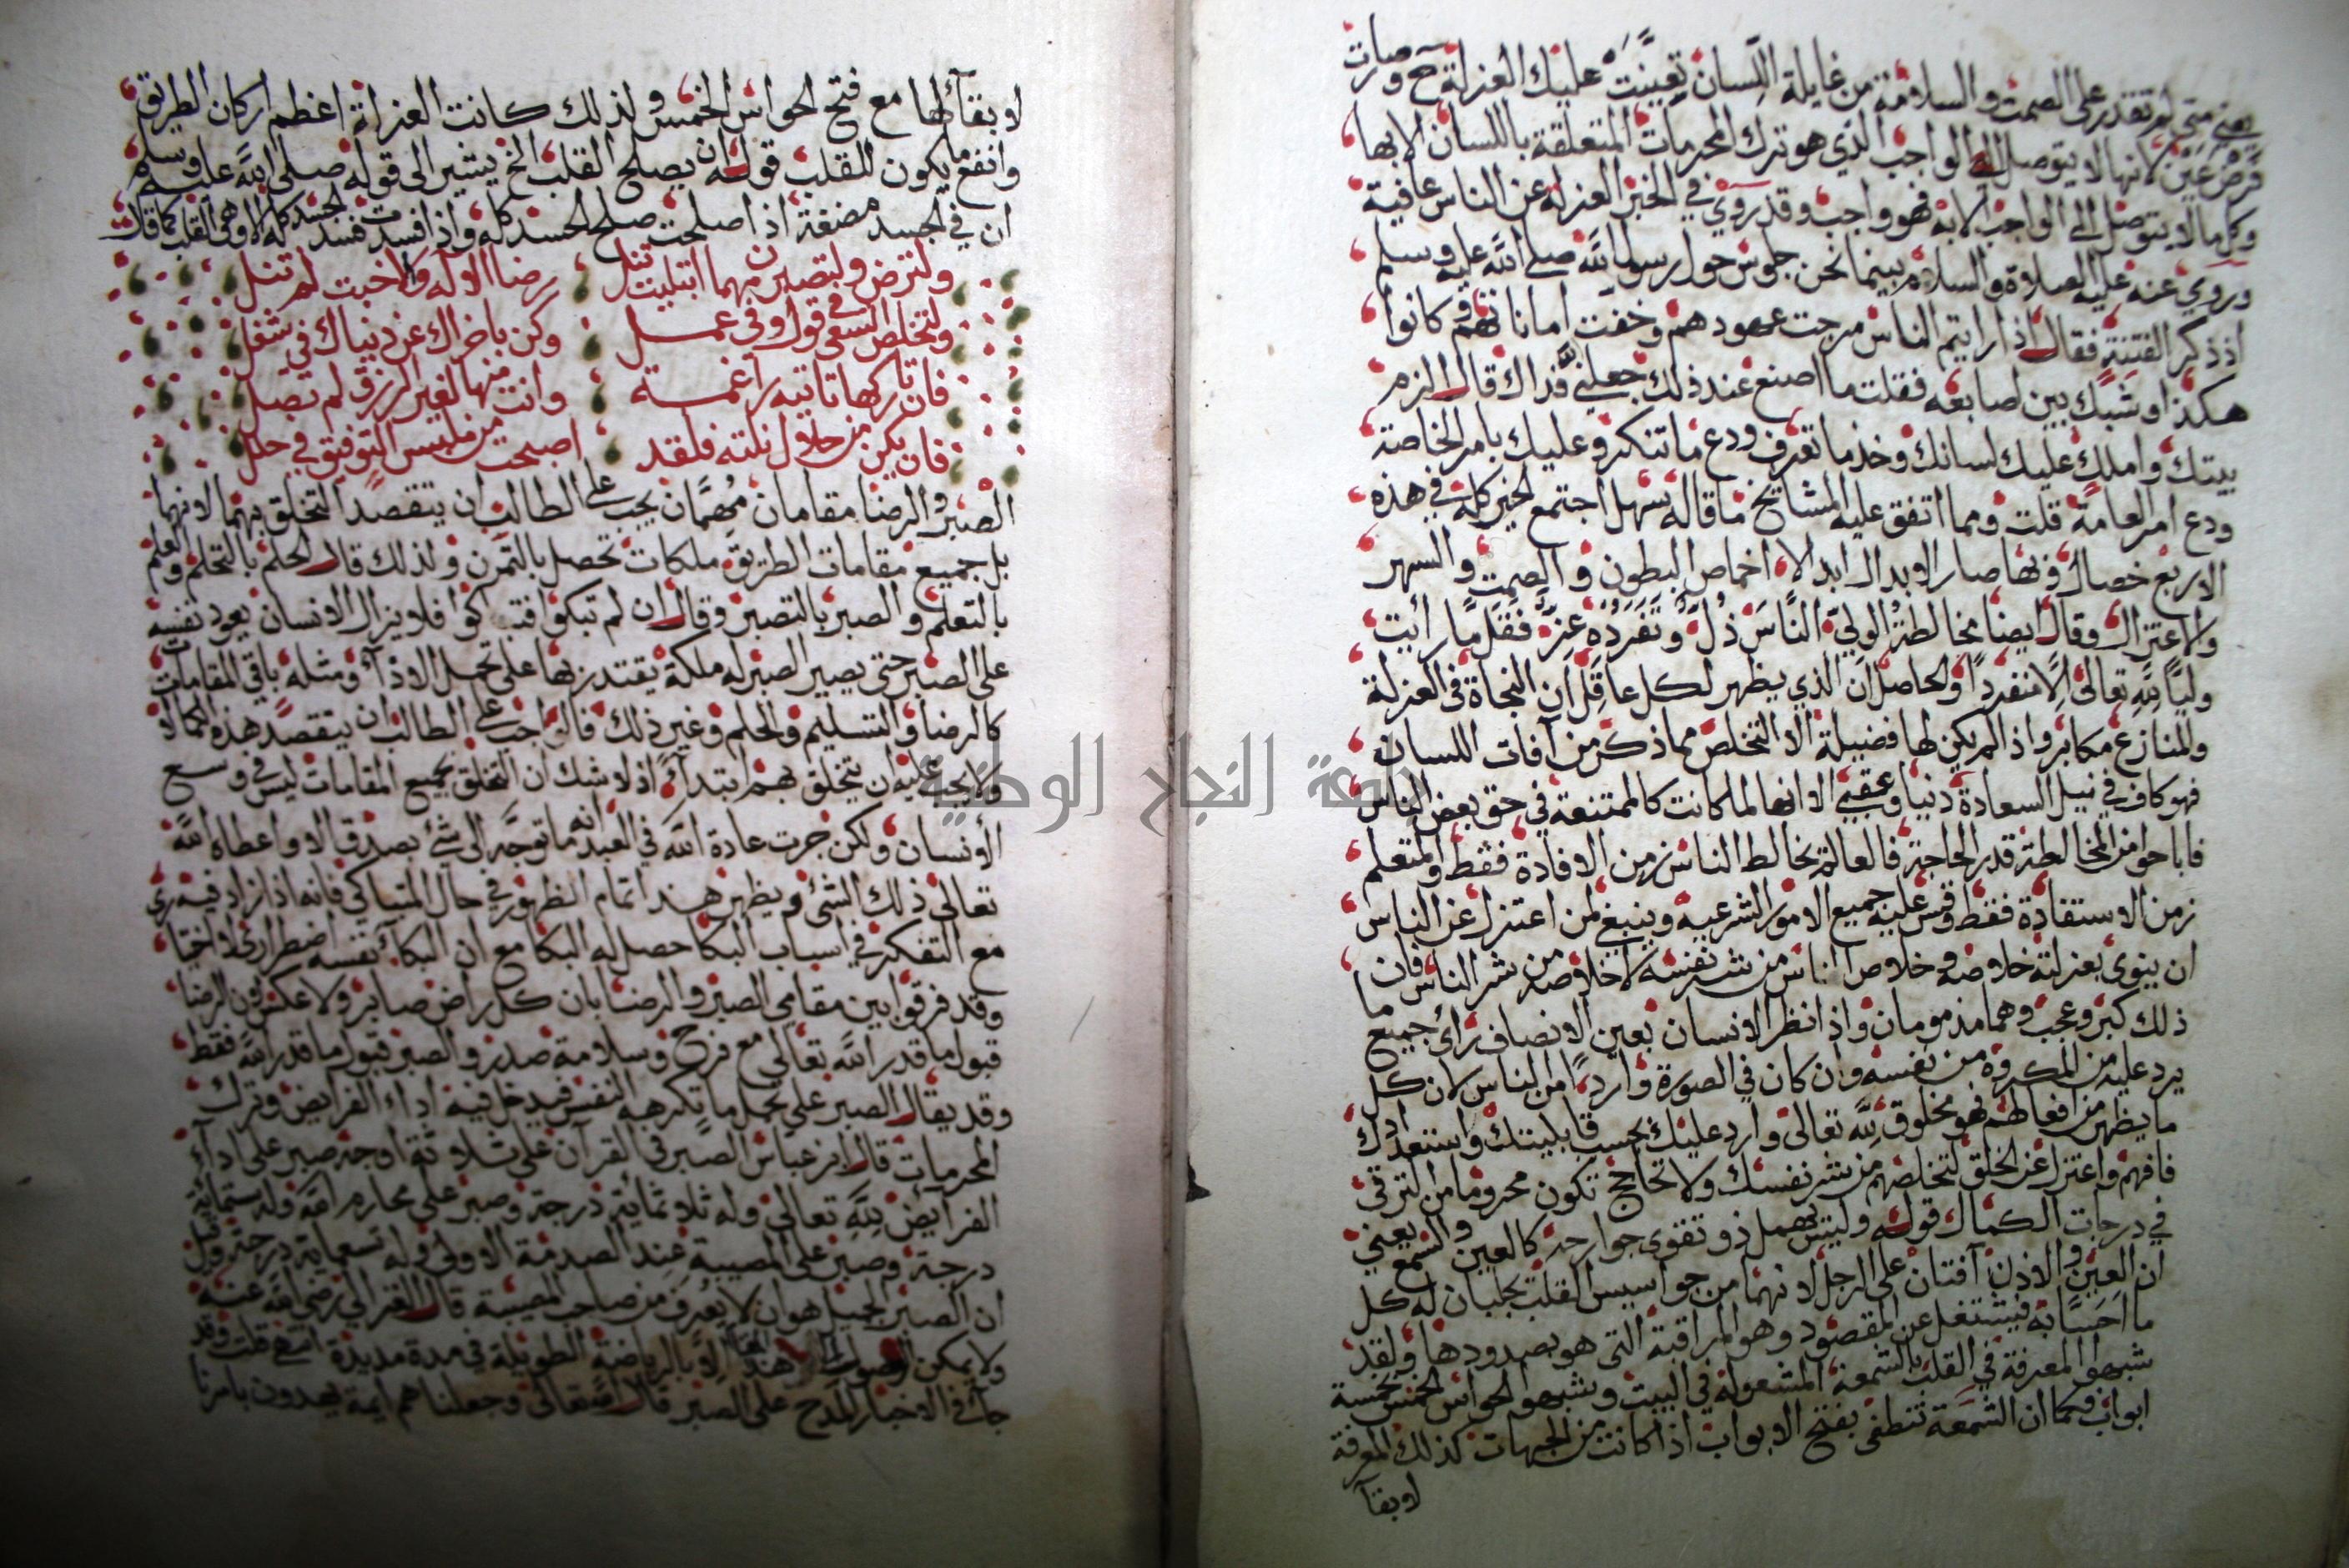 يعني متى لم تقدر على الصمت والسلامة من غايلة اللسان تعينت عليك العزلة ح وصارت
فرض عين لانها لا يتوصل الى الواجب الذي هو ترك المحرمات المتعلقة باللسان الا بها
وكل ما لا يتوصل الى الواجب الا به فهو واجب وقد روي في الخبر العزلة عن الناس عافية
وروي عنه عليه الصلاة والسلام بينما نحن جلوس حول رسول الله صلى الله عليه وسلم
اذ ذكر الفتنة فقال اذا رايتم الناس مرجت عهودهم وخفت اماناتهم وكانوا
هكذا وشبك بين اصابعه فقلت ما اصنع عند ذلك جعلني الله فداك قال الزم
بيتك واملك عليك لسانك وخذ ما تعرف ودع ما تنكر وعليك بامر الخاصة
ودع امر العامة قلت ومما اتفق عليه المشايخ ما قاله سهل اجتمع الخير كله في هذه
الاربع خصال وبها صار الابدال ابدالا اخماص البطون والصمت والسهر
والاعتزال وقال ايضا مخالطة الولي الناس ذل وتفرده عز فقل ما رأيت
وليا لله تعالى الا منفردا والحاصل ان الذي يظهر لكل عاقل ان النجاة في العزلة
والمنازع مكابر واذا لم يكن لها فضيلة الا التخلص مما ذكر من آفات اللسان
فهو كاف في نيل السعادة دنيا وعقبى الا انها لما كانت كالممتنعة في حق بعض الناس
فاباحوا من المخالطة قدر الحاجة فالعالم يخالط الناس زمن الافادة فقط والمتعلم
زمن الاستفادة فقط وقس عليه جميع الامور الشرعيه وينبغي لمن اعتزل عن الناس
ان ينوي بعزلته خلاصه وخلاص الناس من شر نفسه لا خلاصه من شر الناس فان
ذلك كبر وعجب وهما مذمومان واذا نظر الانسان بعين الانصاف رأى جميع ما
يرد عليه من المكروه من نفسه وان كان في الصورة واردا من الناس لان كل
ما يظهر من افعالهم فهو مخلوق لله تعالى وارد عليك بحسب قابليتك واستعدادك
فافهم واعتزل عن الخلق لتخلصهم من شر نفسك ولا تحاجج تكون محروما من الترقي
في درجات الكمال قوله وليس يهمل ذو تقوى جوارحه كالعين والسمع يعني
ان العين والاذن آفتان على الرجل لانهما من جواسيس القلب تجلبان له كل
ما احسا به فيشتغل عن المقصود وهو المراقبة التي هو بصددها ولقد
شبهوا المعرفة في القلب بالشمعة المشعولة في البيت وشبهوا الحواس الخمس بخمسة
ابواب فكما ان الشمعة تنطفي بفتح الابواب اذا كانت من الجهات كذلك المعرفة
لا بقآ
لا بقآء لها مع فتح الحواس الخمس ولذلك كانت العزلة اعظم اركان الطريق
وانفع ما يكون للقلب قوله ان يصلح القلب الخ يشير الى قوله صلى الله عليه وسلم
ان في الجسد مضغة اذا صلحت صلح الجسد كله واذا فسدت فسد الجسد كله الا وهي القلب كما قال
ولترض ولتصبرن مهما ابتليت تنل رضا الاله والا خبت لم تنل
ولتخلص السعي في قول وفي عمل وكن باخراك عن دنياك في شغل
فان تاركها تاتيه راغمة وانت منها لغير الرزق لم تصل
فان يكن من حلال نلته فلقد اصبحت من ملبس التوفيق في حلل
الصبر والرضا مقامان مهمان يجب على الطالب ان يتقصد التخلق بهما لانهما
بل جميع مقامات الطريق ملكات تحصل بالتمرن ولذلك قال الحلم بالتحلم والعلم
بالتعلم والصبر بالتصبر وقال ان لم تبكوا فتباكوا فلا يزال الانسان يعود نفسه
على الصبر حتى يصير الصبر له ملكة يقتدر بها على تحمل الاذآء ومثله باقي المقامات
كالرضا والتسليم والحلم وغير ذلك فالواجب على الطالب ان يتقصد هذه الكمالات
ولا يجب عليه ان يتخلق بهم ابتدآء اذ لا شك ان التخلق بجميع المقامات ليس في وسع
الانسان ولكن جرت عادة الله في العبد انه ما توجه الى شئ بصدق الا واعطاه الله
تعالى ذلك الشئ ويظهر هذا تمام الظهور في حال المتباكي فانه اذا زاد فيه
مع التفكر في اسباب البكا حصل له البكا مع ان البكآء نفسه اضطراري لا اختيا
وقد فرقوا بين مقامي الصبر والرضا بان كل راض صابر ولا عكس لان الرضا
قبول ما قدر الله تعالى مع فرح وسلامة صدر والصبر قبول ما قدر الله فقط
وقد يقال الصبر على تحمل ما تكرهه النفس فيدخل فيه اداء الفرايض وترك
المحرمات قال ابن عباس الصبر في القرآن على ثلاثة اوجه صبر على ادآء
الفرايض لله تعالى وله ثلاثمائة درجة وصبر على محارم الله وله ستمائة
درجة وصبر على المصيبة عند الصدمة الاولى وله تسعماية درجة وقيل
ان الصبر الجميل هو ان لا يعرف من صاحب المصيبة قال الغزالي رضي الله عنه
ولا يمكن الوصول الى هذا المقام الا بالرياضة الطويلة في مدة مديدة انتهى قلت وقد
جآء في الاخبار المدح على الصبر قال الله تعالى وجعلناهم ايمة يهدون بامرنا
جامعة النجاح الوطنية